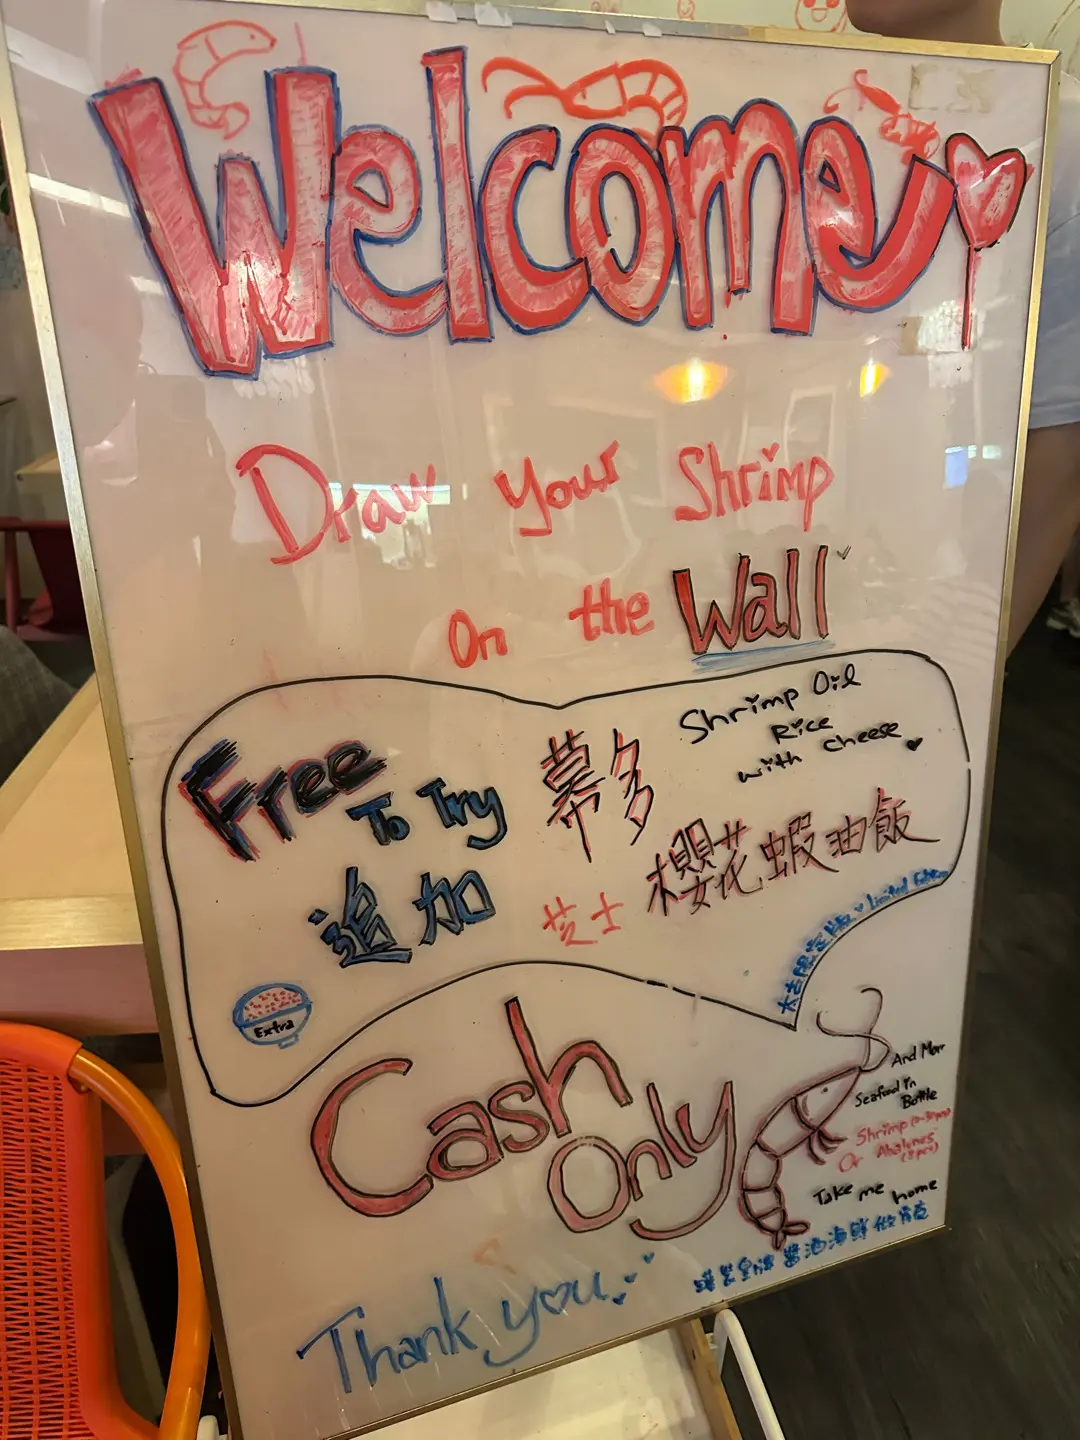 Welcome
Draw your Shrimp
On the Wall
Free To Try
追加
幕多
Shrimp Oil
Rice
with cheese
芝士 櫻花蝦油飯
太古限定版 Limited Edition
Extra
Cash
Only
And More
Seafood in
Bottle
Shrimp
Or Abalones
Take me home
Thank you